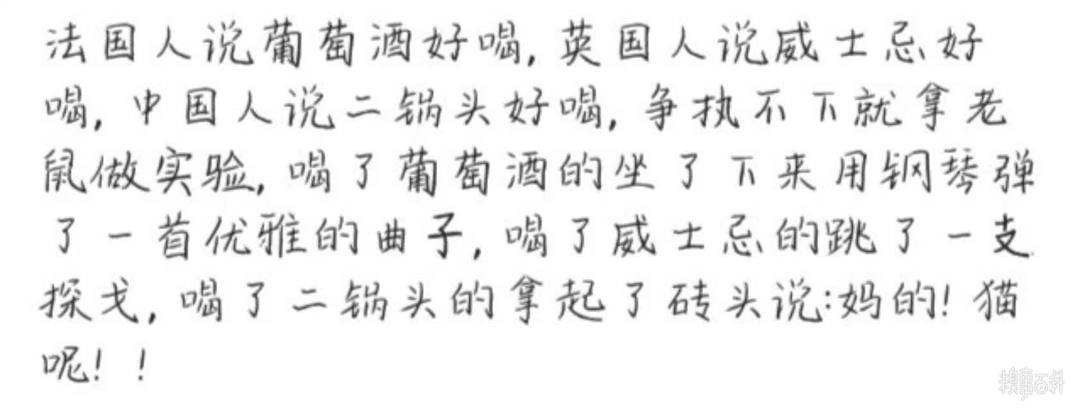 法国人说葡萄酒好喝,英国人说威士忌好
喝,中国人说二锅头好喝,争执不下就拿老
鼠做实验,喝了葡萄酒的坐了下来用钢琴弹
了一首优雅的曲子,喝了威士忌的跳了一支
探戈,喝了二锅头的拿起了砖头说:妈的!猫
呢!!